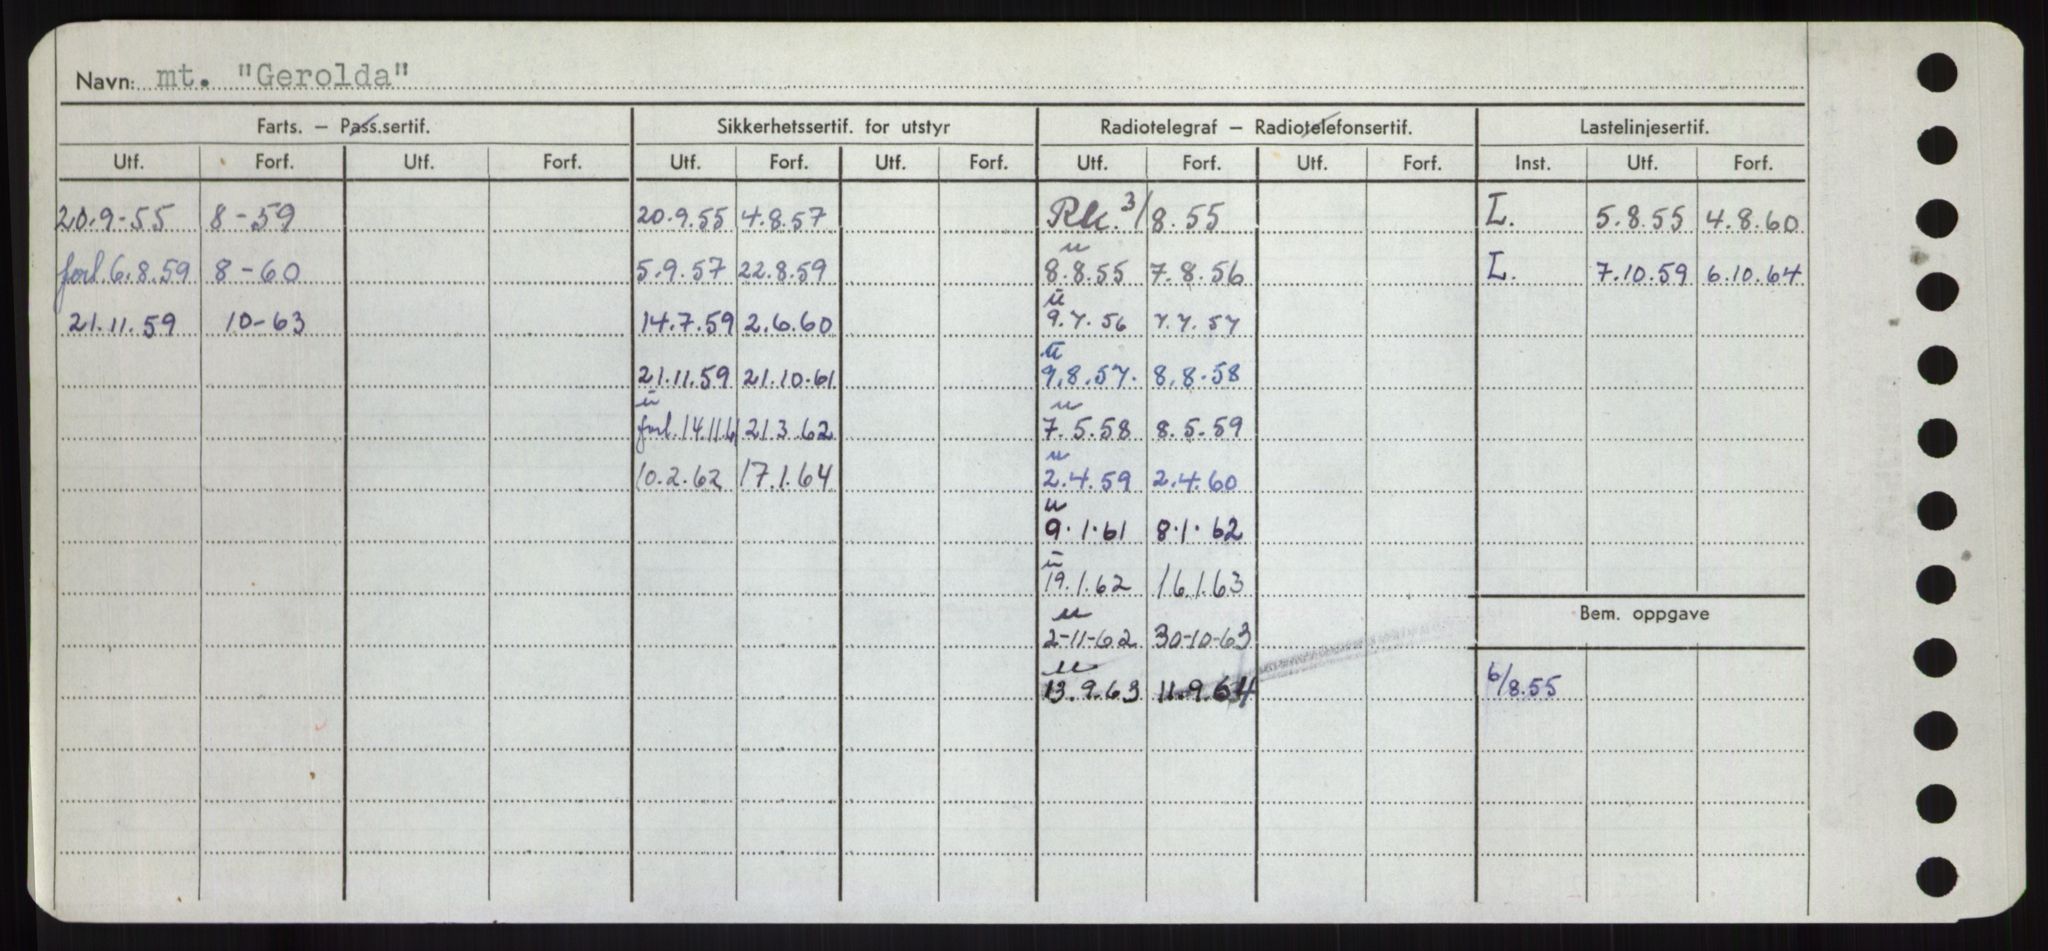 Navn: mt. "Gerolda"
Farts. – Pass.sertif. Sikkerhetssertif. for utstyr Radiotelegraf – Radiotelefonsertif. Lastelinjesertif.
Utf. Forf. Utf. Forf. Utf. Forf. Utf. Forf. Utf. Forf. Utf. Forf. Inst. Utf. Forf.
20.9-55 8-59 20.9.55 4.8.57 Rk. 3/8.55 L. 5.8.55 4.8.60
u
forl. 6.8.59 8-60 5.9.57 22.8.59 8.8.55 7.8.56 L. 7.10.59 6.10.64
u
21.11.59 10-63 14.7.59 2.6.60 9.7.56 7.7.57
u
21.11.59 21.10.61 9.8.57. 8.8.58
u u
forl. 14.11.61 21.3.62 7.5.58 8.5.59
u
10.2.62 17.1.64 2.4.59 2.4.60
u
9.1.61 8.1.62
u
19.1.62 16.1.63
Bem. oppgave
u
2-11-62 30-10-63
u
13.9.63 11.9.64 6/8.55